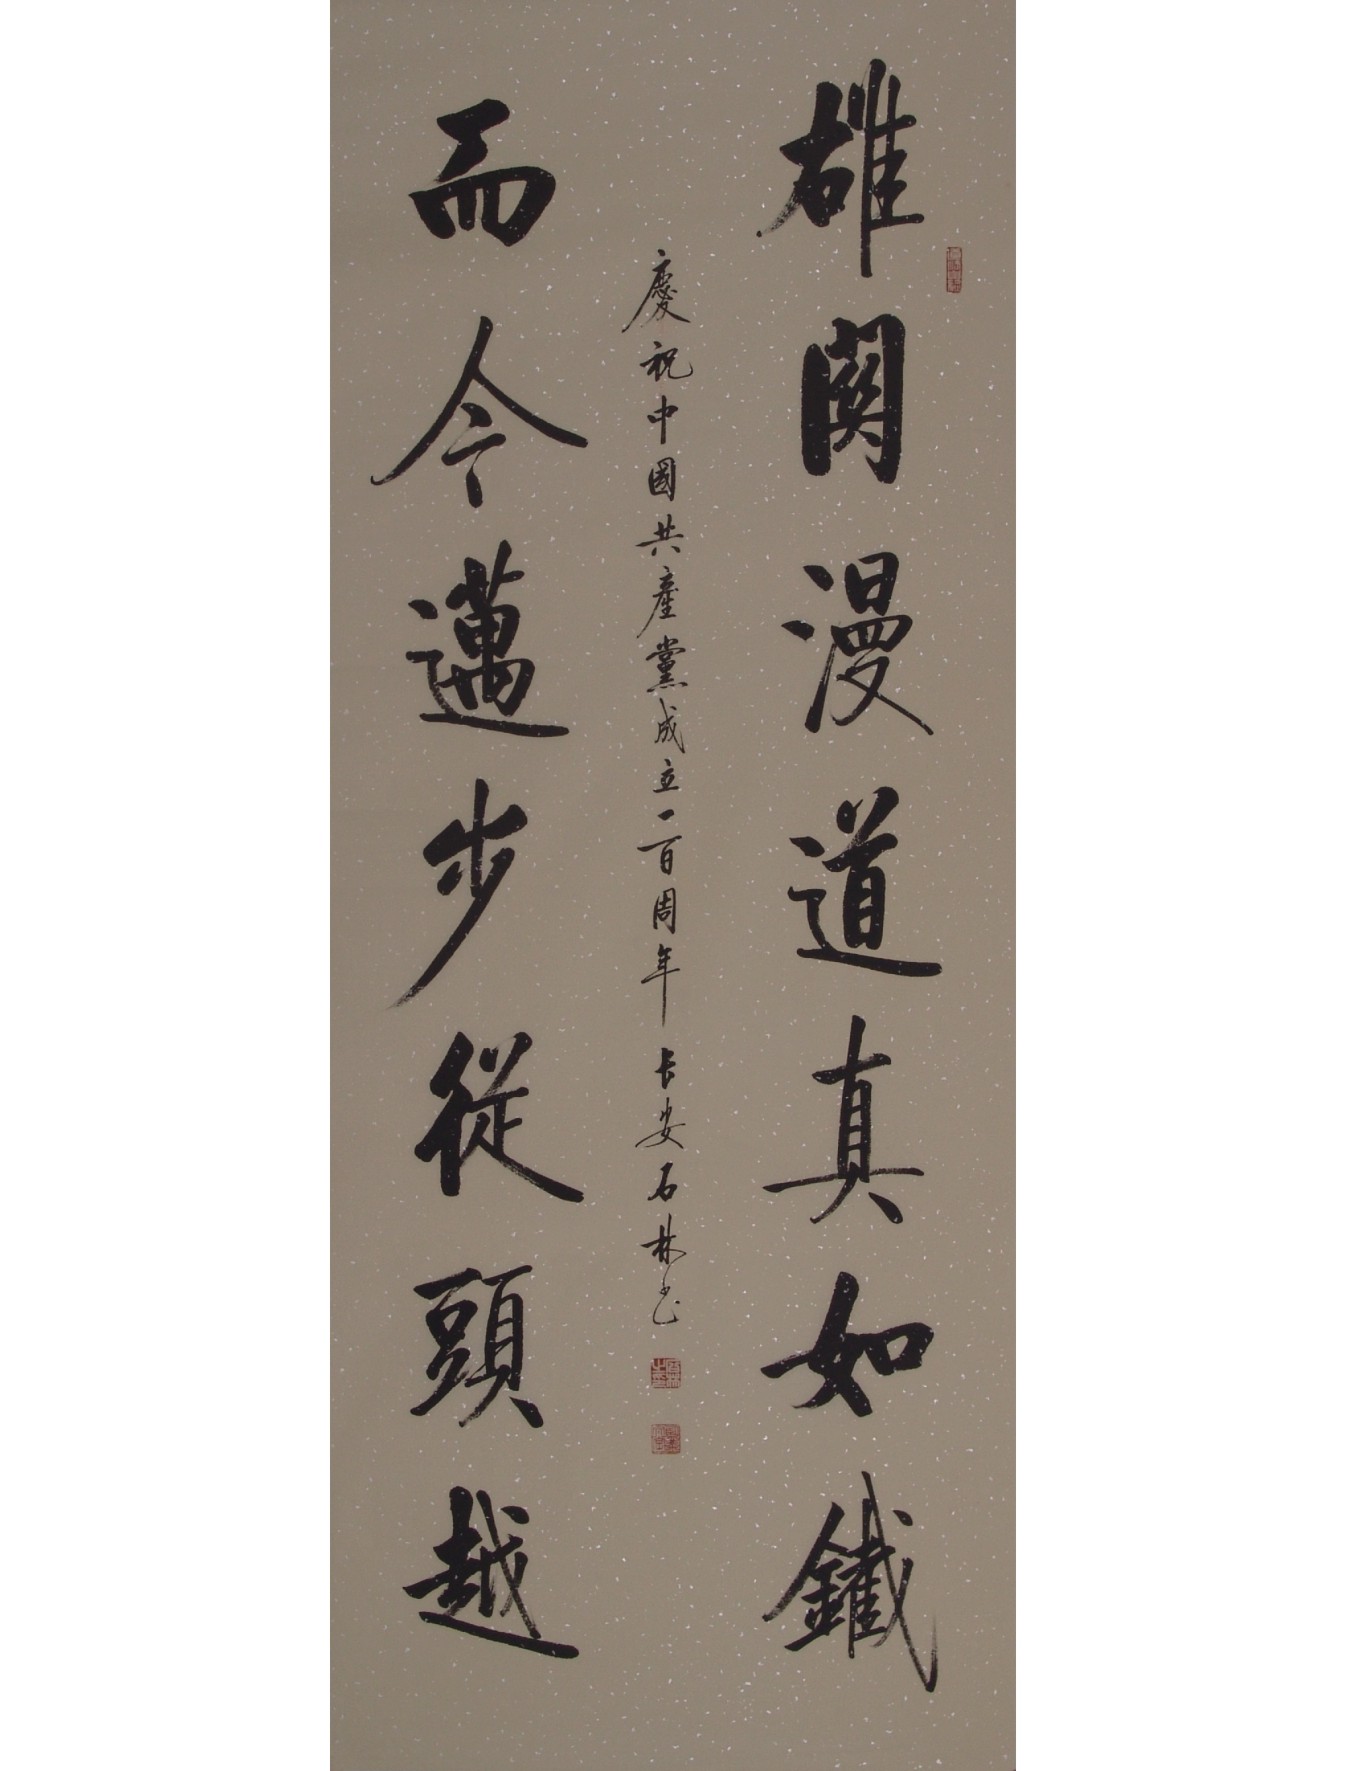 雄關漫道真如鐵
慶祝中國共産黨成立一百周年 长安石林书
而今邁步從頭越